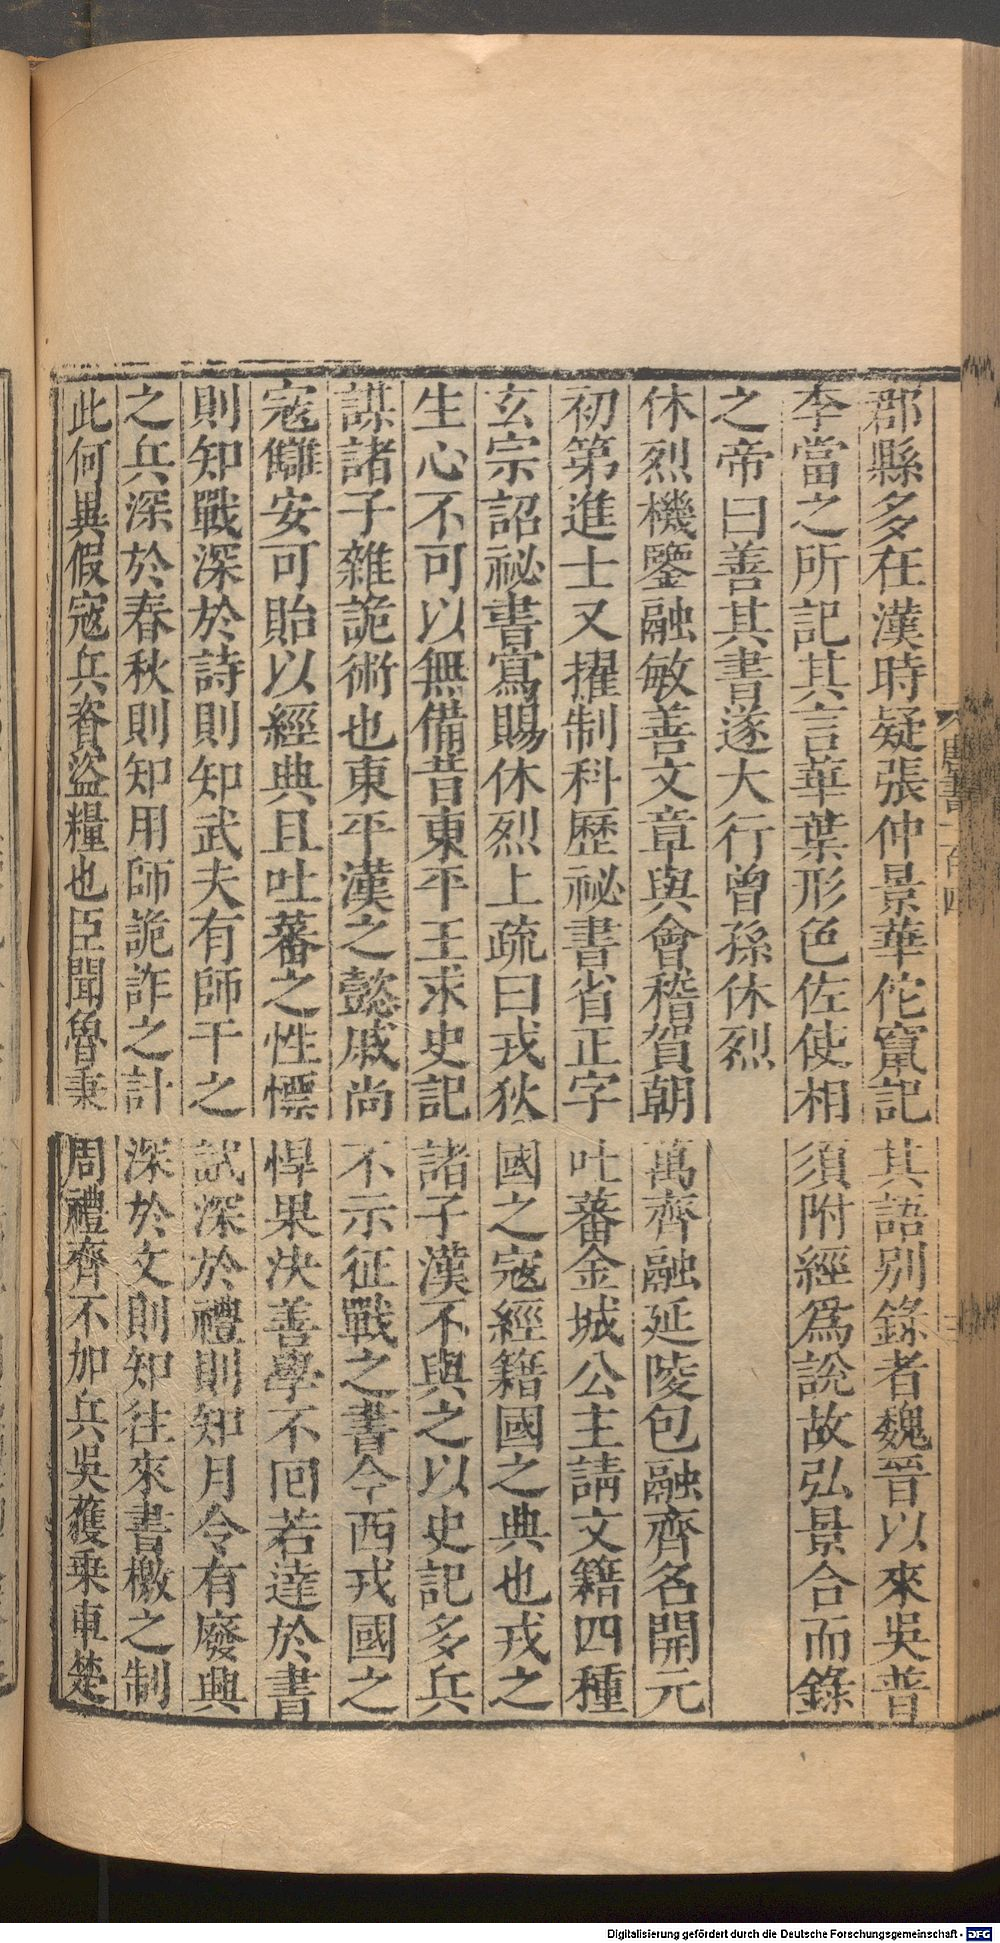 郡縣多在漢時疑張仲景華佗竄記其語別錄者魏晉以來吳普
李當之所記其言華葉形色佐使相須附經爲說故弘景合而錄
之帝曰善其書遂大行曾孫休烈
休烈機鑒融敏善文章與會稽賀朝萬齊融延陵包融齊名開元
初第進士又擢制科歷祕書省正字吐蕃金城公主請文籍四種
玄宗詔祕書寫賜休烈上疏曰戎狄國之寇經籍國之典也戎之
生心不可以無備昔東平王求史記諸子漢不與之以史記多兵
謀諸子雜詭術也東平漢之懿戚尚不示征戰之書今西戎國之
寇讎安可貽以經典且吐蕃之性慓悍果決善學不回若達於書
則知戰深於詩則知武夫有師干之試深於禮則知月令有廢興
之兵深於春秋則知用師詭詐之計深於文則知往來書檄之制
此何異假寇兵資盜糧也臣聞魯秉周禮齊不加兵吳獲乘車楚
Digitalisierung gefördert durch die Deutsche Forschungsgemeinschaft - DFG